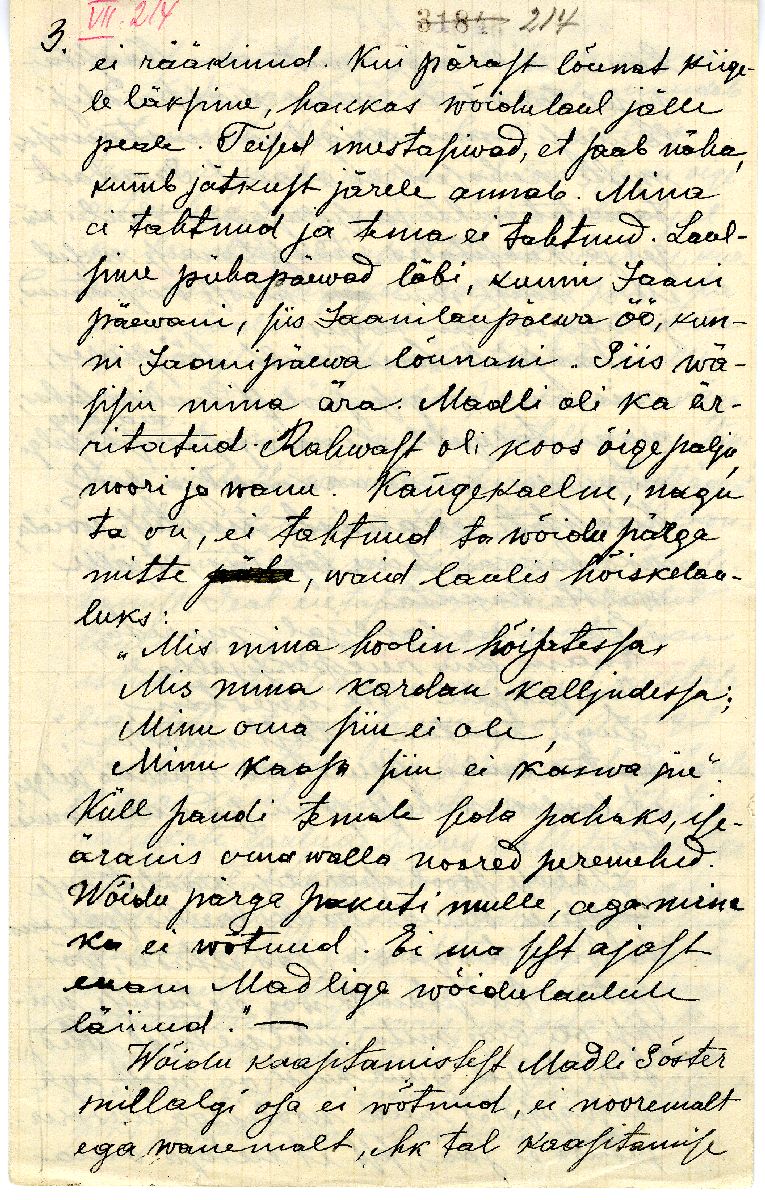 3. VII 214 3181 214
ei rääkinud. Kui pärast lõunat kiige-
le läksime, hakkas wõidulaul jälle
peale. Teised imestasiwad, et saab näha,
kumb jätkust järele annab. Mina
ei tahtnud ja tema ei tahtnud. Laul-
sime pühapäewad läbi, kunni Jaani
päewani, siis Jaanilaupäewa öö, kun-
ni Jaanipäewa lõunani. Siis wä-
sisin mina ära. Madli oli ka är-
ritatud. Rahwast oli koos õige palju,
noori ja wanu. Kangekaelne, nagu
ta on, ei tahtnud ta wõidu pärga
mitte, waid laulis hõiskelau-
luks:
„Mis mina hoolin hõisatessa,
Mis mina kardan kalljudessa;
Minu oma siin ei ole,
Minu kaasa siin ei kaswa siie".
Küll pandi temale seda pahaks, ise-
äranis oma walla noored peremehed.
Wõidu pärga pakuti mulle, aga mina
ka ei wõtnud. Ei ma sest ajast
enam Madlige wõidulaulule
läinud." —
Wõidu kaasitamistest Madli Sõster
millalgi osa ei wõtnud, ei nooremalt
ega wanemalt, ehk tal kaasitamise